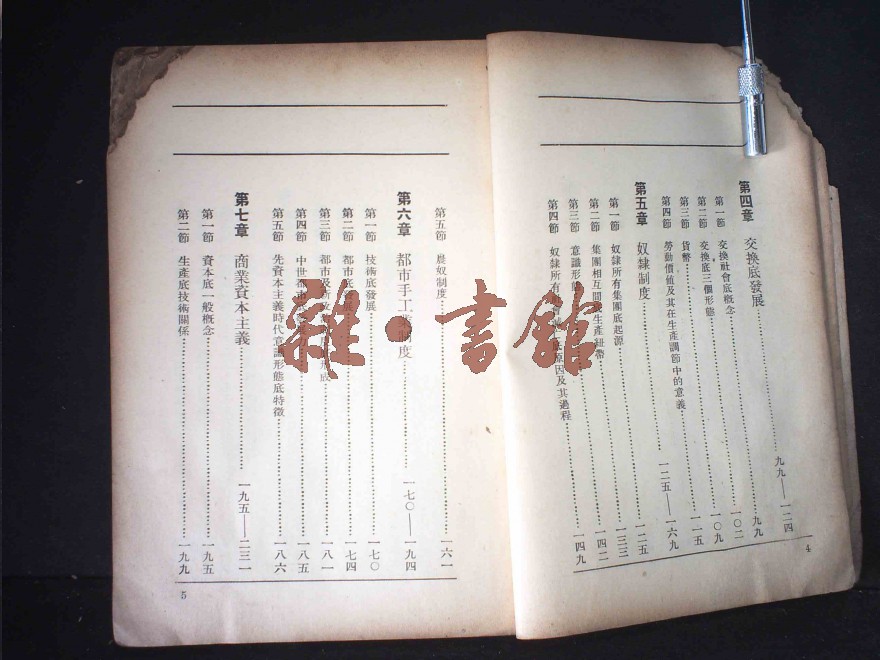 第四章 交換底發展……九九—一二四
第一節 交換社會底概念……九九
第二節 交換底三個形態……一〇二
第三節 貨幣……一〇九
第四節 勞動價値及其在生產調節中的意義……一一五
第五章 奴隸制度……一二五—一六九
第一節 奴隸所有集團底起源……一二五
第二節 集團相互間底生產紐帶……一三三
第三節 意識形態……一四二
第四節 奴隸所有社會 原因及其過程……一四九
4
第五節 農奴制度……一六一
第六章 都市手工業制度……一七〇—一九四
第一節 技術底發展……一七〇
第二節 都市底發展……一七四
第三節 都市及新政 形成……一八一
第四節 中世都市底 力……一八五
第五節 先資本主義時代意識形態底特徵……一八六
第七章 商業資本主義……一九五—二三一
第一節 資本底一般概念……一九五
第二節 生產底技術關係……一九九
5
雜·書館